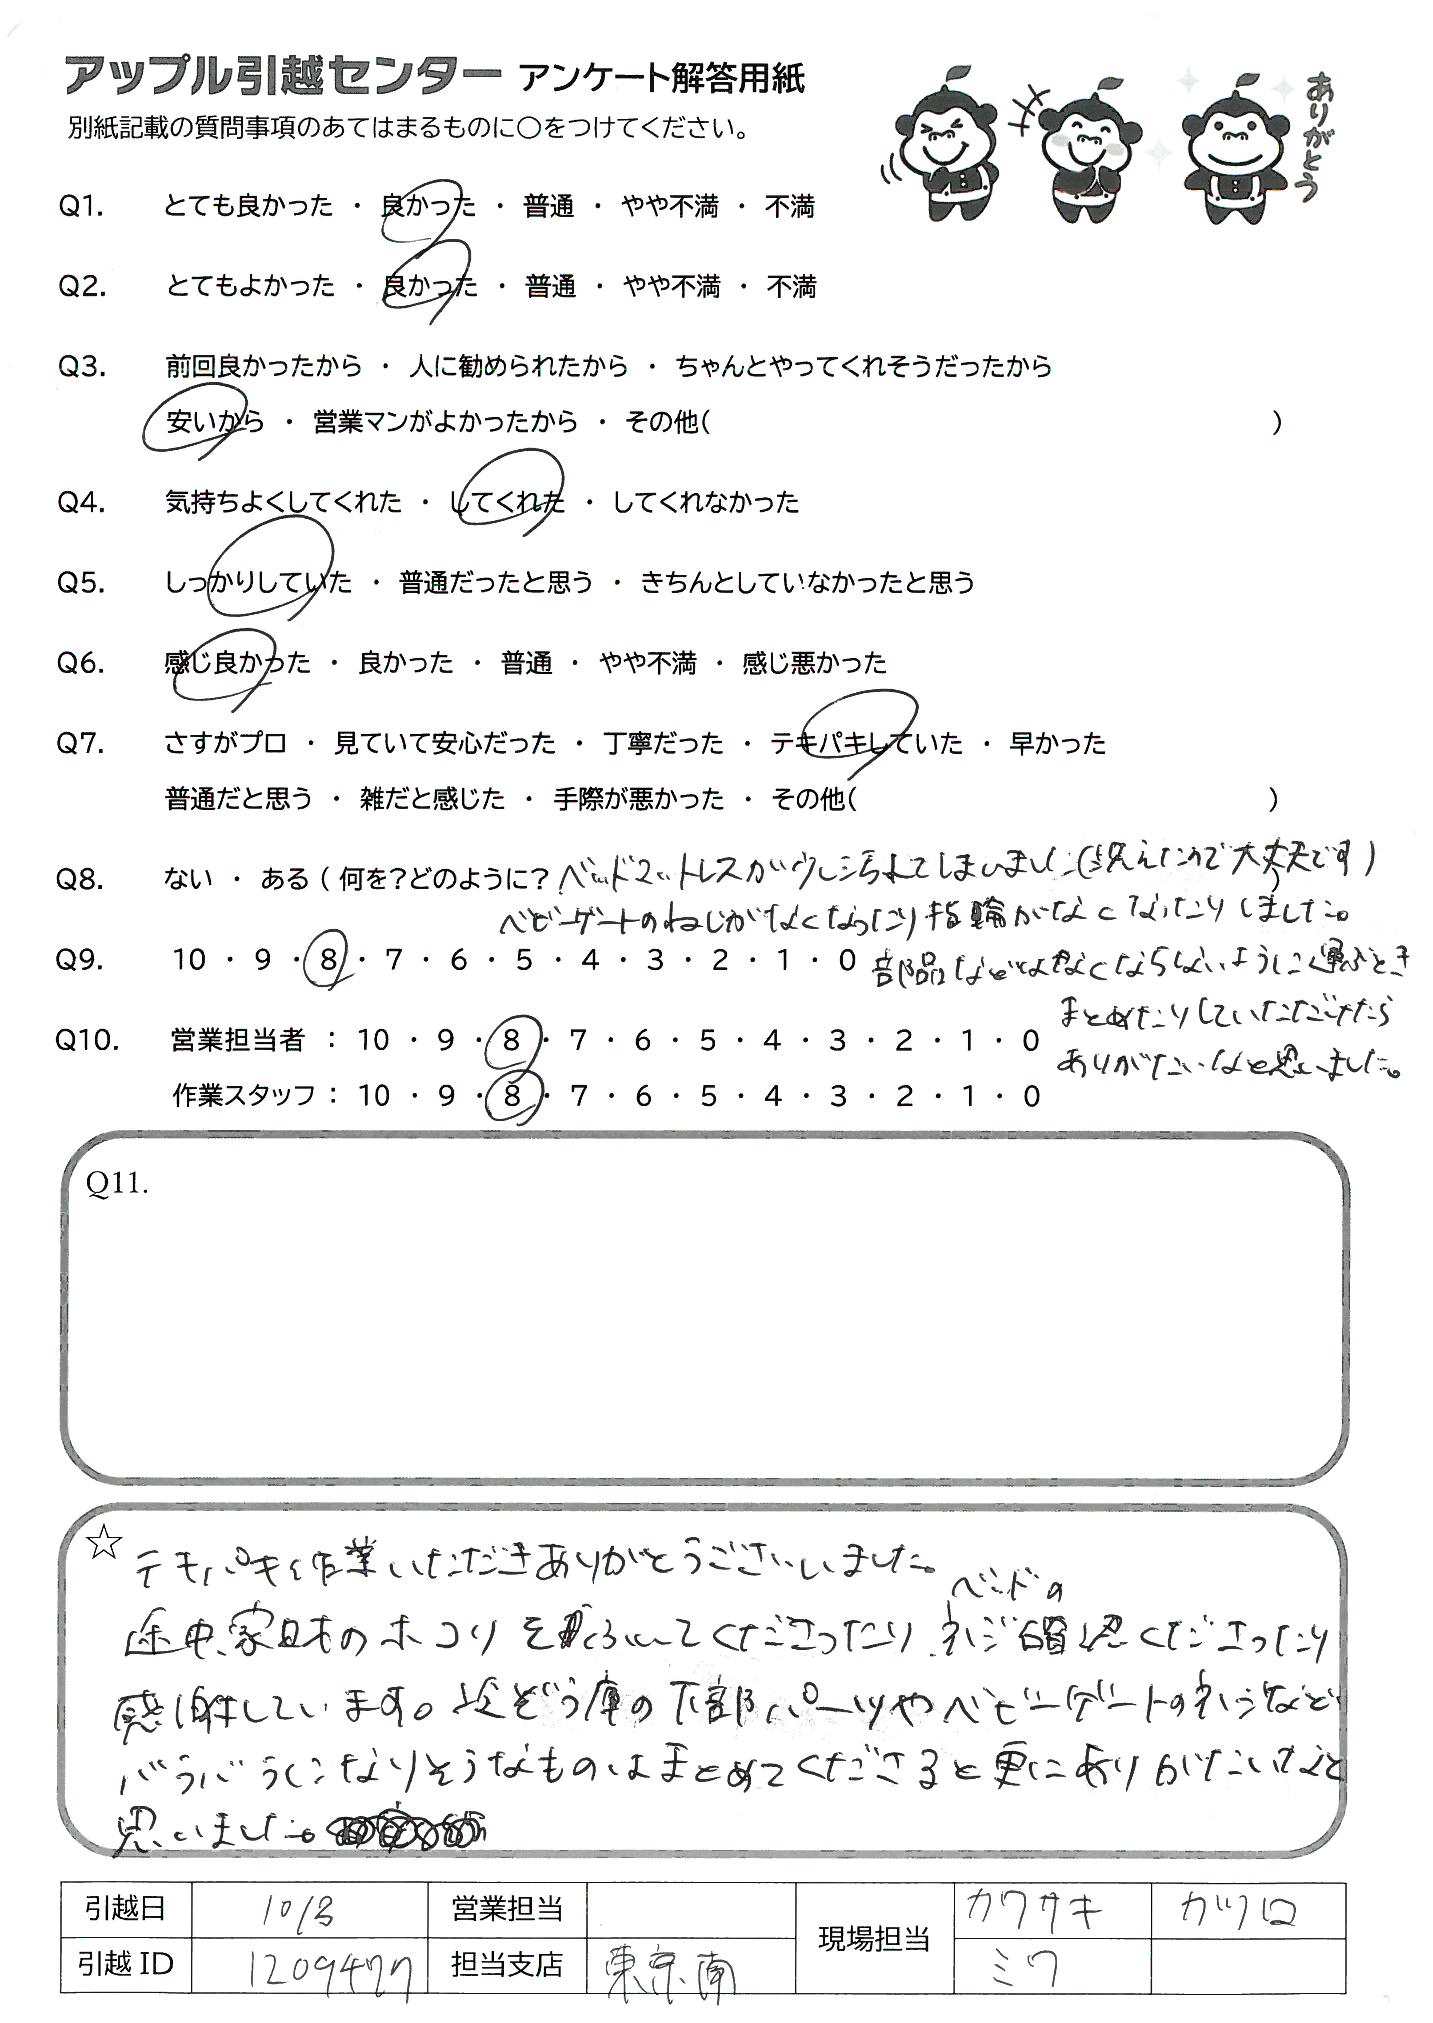 アップル引越センター アンケート解答用紙
別紙記載の質問事項のあてはまるものに〇をつけてください。
ありがとう
Q1. とても良かった ・ 良かった ・ 普通 ・ やや不満 ・ 不満
Q2. とてもよかった ・ 良かった ・ 普通 ・ やや不満 ・ 不満
Q3. 前回良かったから ・ 人に勧められたから ・ ちゃんとやってくれそうだったから
安いから ・ 営業マンがよかったから ・ その他( )
Q4. 気持ちよくしてくれた ・ してくれた ・ してくれなかった
Q5. しっかりしていた ・ 普通だったと思う ・ きちんとしていなかったと思う
Q6. 感じ良かった ・ 良かった ・ 普通 ・ やや不満 ・ 感じ悪かった
Q7. さすがプロ ・ 見ていて安心だった ・ 丁寧だった ・ テキパキしていた ・ 早かった
普通だと思う ・ 雑だと感じた ・ 手際が悪かった ・ その他( )
Q8. ない ・ ある ( 何を?どのように? ベッドマットレスが少し汚れてしまいました(洗えたので大丈夫です)
ベビーゲートのねじがなくなったり指輪がなくなったりしました。
Q9. 10 ・ 9 ・ 8 ・ 7 ・ 6 ・ 5 ・ 4 ・ 3 ・ 2 ・ 1 ・ 0 部品などはなくならないように運ぶとき
まとめたりしていただけたら
Q10. 営業担当者 : 10 ・ 9 ・ 8 ・ 7 ・ 6 ・ 5 ・ 4 ・ 3 ・ 2 ・ 1 ・ 0
ありがたいなと思いました。
作業スタッフ : 10 ・ 9 ・ 8 ・ 7 ・ 6 ・ 5 ・ 4 ・ 3 ・ 2 ・ 1 ・ 0
Q11.
☆ テキパキと作業いただきありがとうございました。
ベッドの
途中、家具のホコリをふいてくださったり、ネジ確認くださったり
感謝しています。冷ぞう庫の下部パーツやベビーゲートのネジなど
バラバラになりそうなものはまとめてくださると更にありがたいなと
思いました。
引越日 10/3 営業担当 現場担当 カワサキ カツロ
引越ID 1209477 担当支店 東京南 ミワ